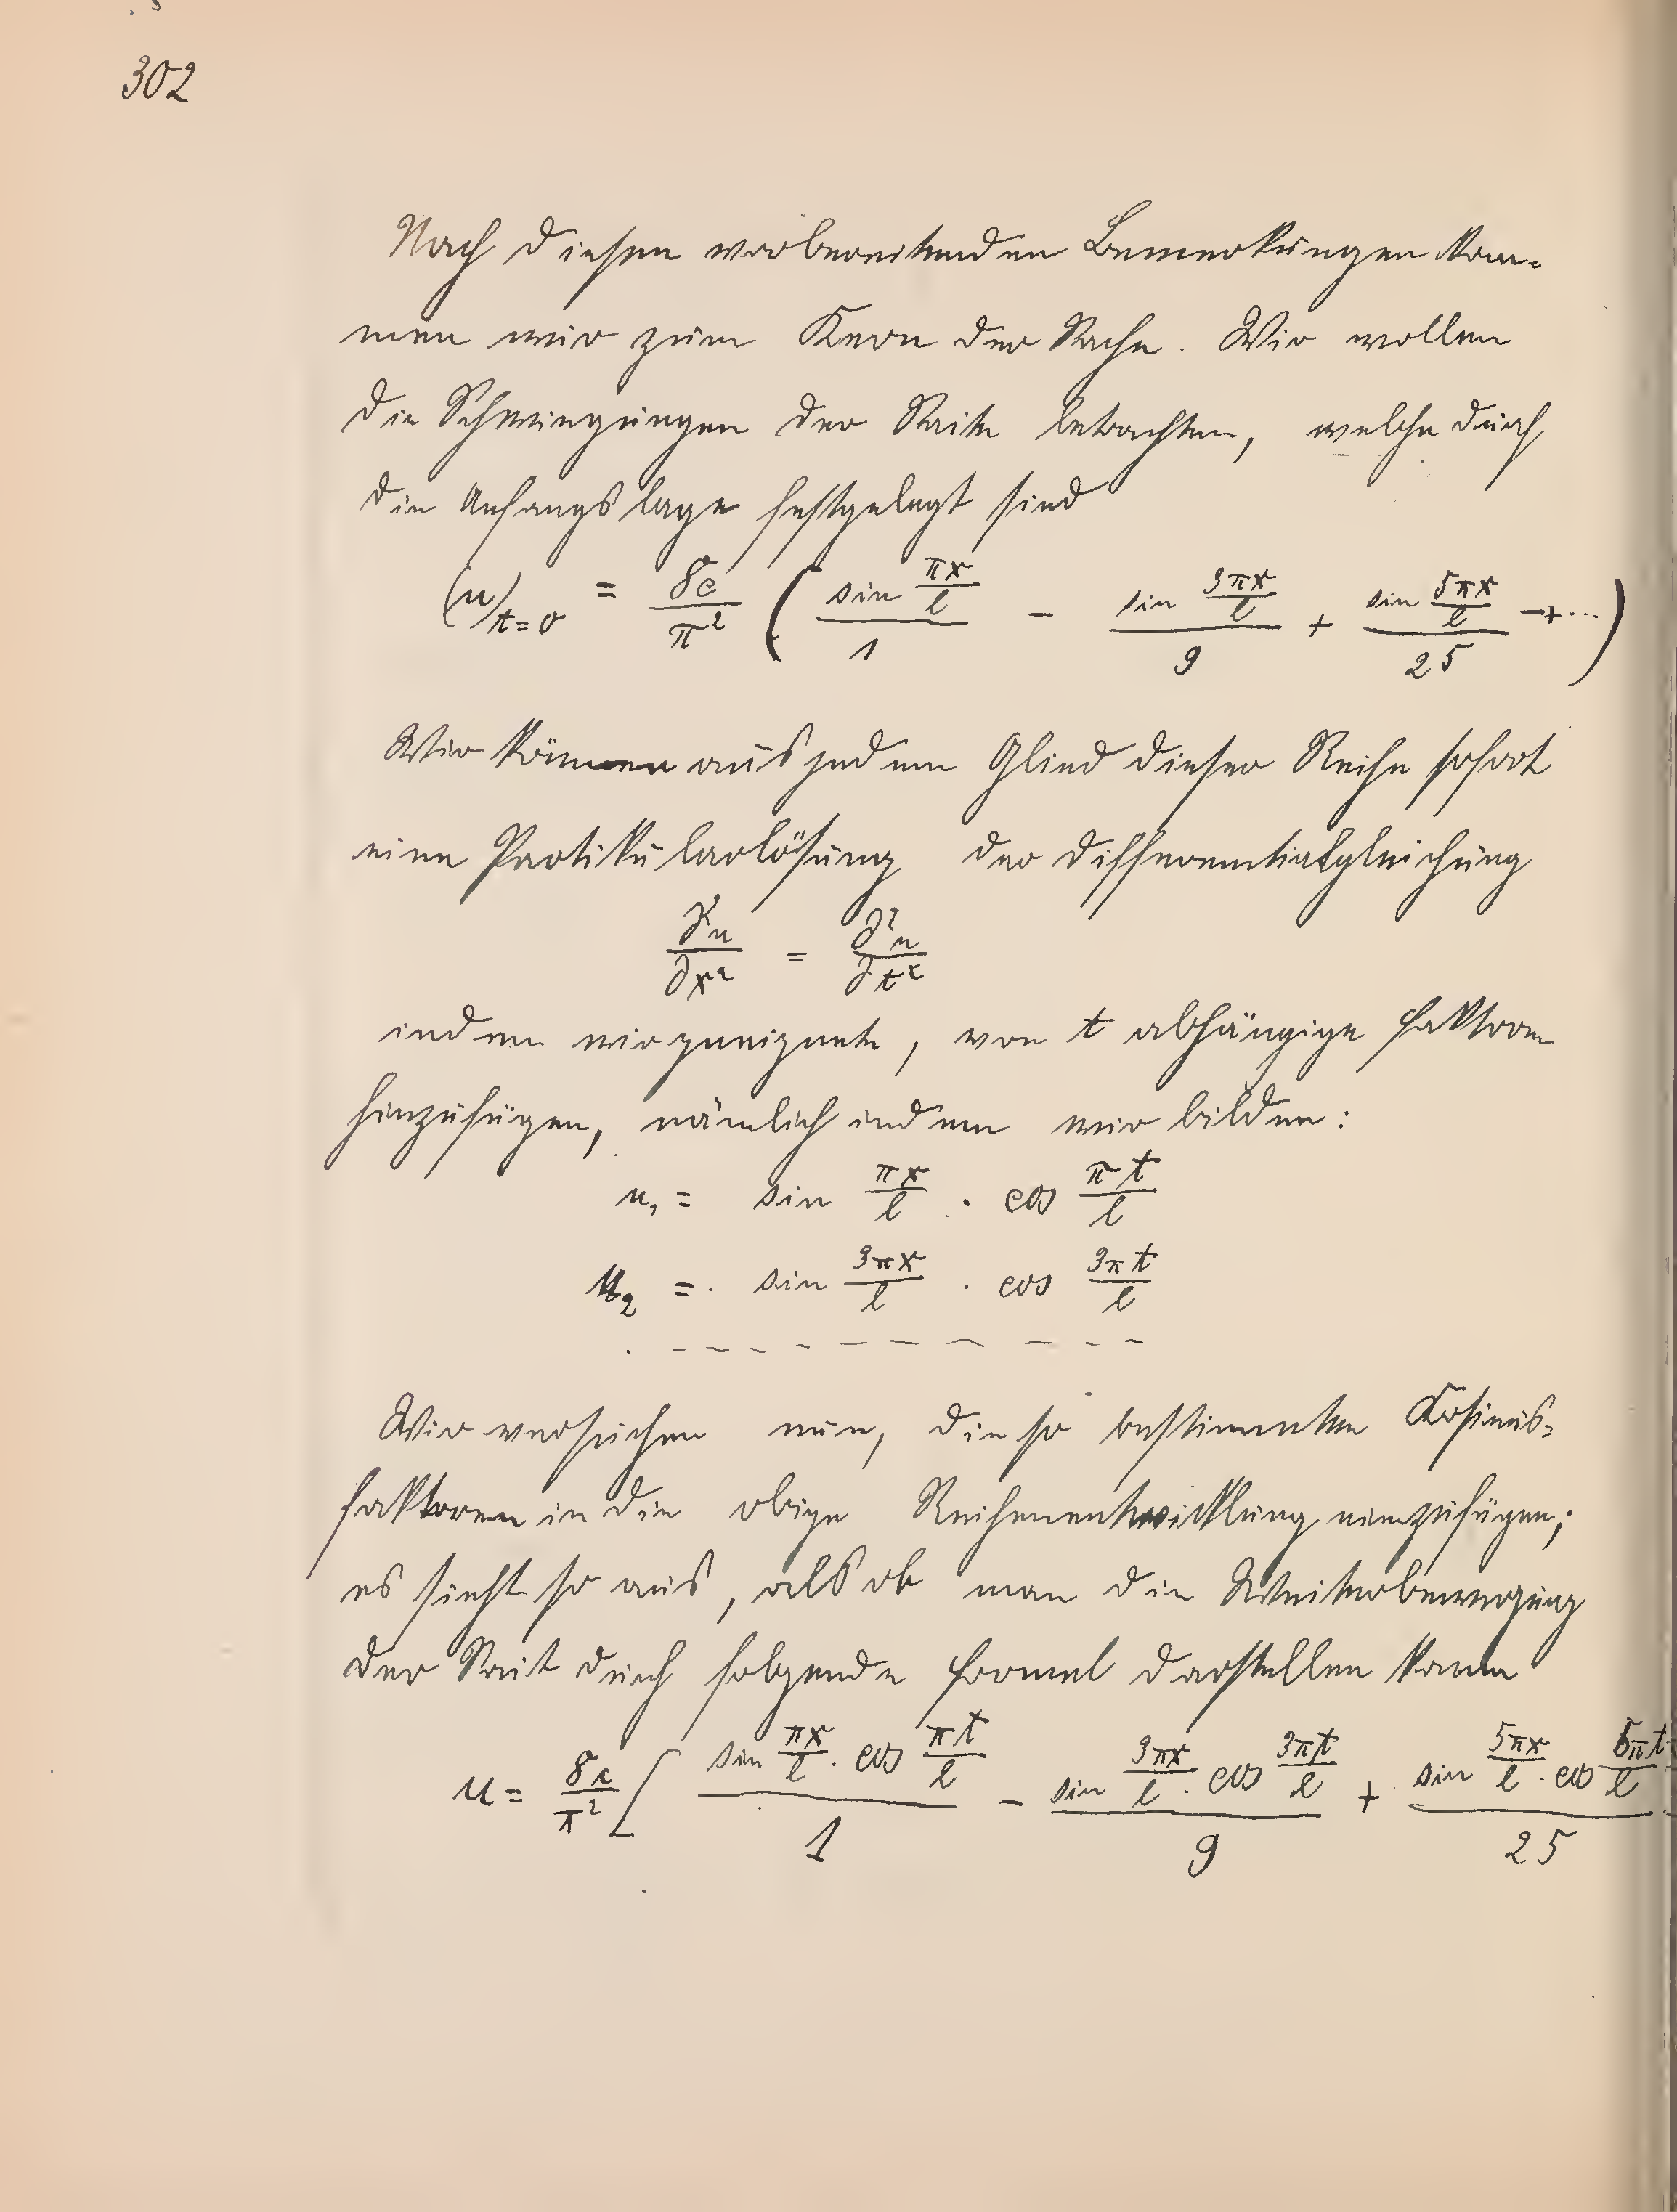 302
Nach diesen vorbereitenden Bemerkungen kom-
men wir zum Kern der Sache. Wir wollen
die Schwingungen der Saite betrachten, welche durch
die Anfangslage festgelegt sind
(u)_{t=0} = \frac{8c}{π^2} ( \frac{sin \frac{πx}{l}}{1} - \frac{sin \frac{3πx}{l}}{9} + \frac{sin \frac{5πx}{l}}{25} -+... )
Wir können aus jedem Glied dieser Reihe sofort
eine Partikularlösung der Differentialgleichung
\frac{∂^2u}{∂x^2} = \frac{∂^2u}{∂t^2}
indem wir geeignete, von t abhängige Faktoren
hinzufügen, nämlich indem wir bilden:
u_1 = sin \frac{πx}{l} · cos \frac{πt}{l}
u_2 = sin \frac{3πx}{l} · cos \frac{3πt}{l}
- - - - - - - - - -
Wir versuchen nun, die so bestimmten Kosinus-
faktoren in die obige Reihenentwicklung einzufügen;
es sieht so aus, als ob man die Weiterbewegung
der Sait durch folgende Formel darstellen kann
u = \frac{8c}{π^2} [ \frac{sin \frac{πx}{l} · cos \frac{πt}{l}}{1} - \frac{sin \frac{3πx}{l} · cos \frac{3πt}{l}}{9} + \frac{sin \frac{5πx}{l} · cos \frac{5πt}{l}}{25}